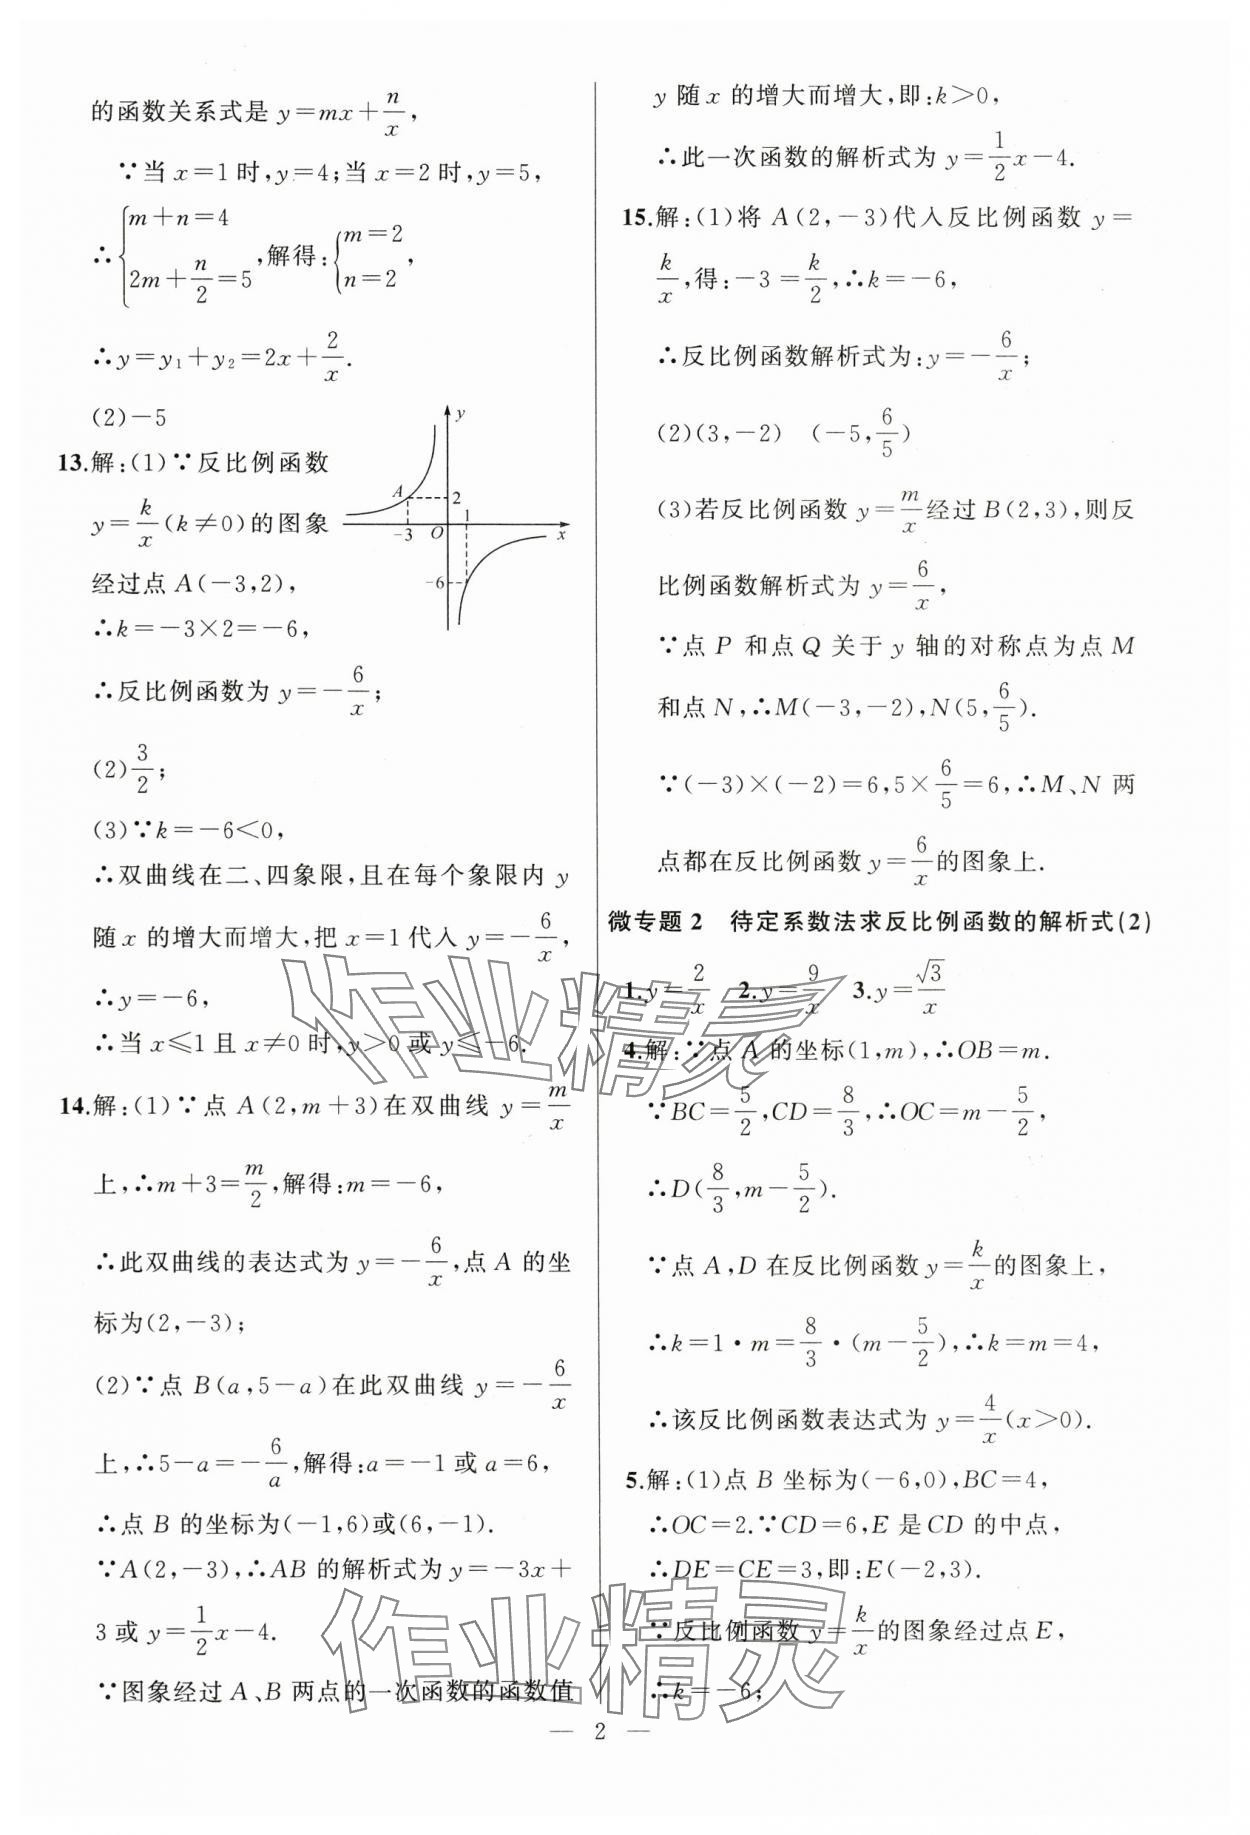 的函数关系式是 y=mx+n/x,
∵当 x=1 时,y=4;当 x=2 时,y=5,
∴{m+n=4 2m+n/2=5,解得:{m=2 n=2,
∴y=y₁+y₂=2x+2/x.
(2)-5
13.解:(1)∵反比例函数
y=k/x(k≠0)的图象
经过点 A(-3,2),
∴k=-3×2=-6,
∴反比例函数为 y=-6/x;
y
A
2
1
-3
O
x
-6
(2)3/2;
(3)∵k=-6<0,
∴双曲线在二、四象限,且在每个象限内 y
随 x 的增大而增大,把 x=1 代入 y=-6/x,
∴y=-6,
∴当 x≤1 且 x≠0 时,y>0 或 y≤-6.
14.解:(1)∵点 A(2,m+3)在双曲线 y=m/x
上,∴m+3=m/2,解得:m=-6,
∴此双曲线的表达式为 y=-6/x,点 A 的坐
标为(2,-3);
(2)∵点 B(a,5-a)在此双曲线 y=-6/x
上,∴5-a=-6/a,解得:a=-1 或 a=6,
∴点 B 的坐标为(-1,6)或(6,-1).
∵A(2,-3),∴AB 的解析式为 y=-3x+
3 或 y=1/2x-4.
∵图象经过 A、B 两点的一次函数的函数值
y 随 x 的增大而增大,即:k>0,
∴此一次函数的解析式为 y=1/2x-4.
15.解:(1)将 A(2,-3)代入反比例函数 y=
k/x,得:-3=k/2,∴k=-6,
∴反比例函数解析式为:y=-6/x;
(2)(3,-2) (-5,6/5)
(3)若反比例函数 y=m/x经过 B(2,3),则反
比例函数解析式为 y=6/x,
∵点 P 和点 Q 关于 y 轴的对称点为点 M
和点 N,∴M(-3,-2),N(5,6/5).
∵(-3)×(-2)=6,5×6/5=6,∴M、N 两
点都在反比例函数 y=6/x的图象上.
微专题 2 待定系数法求反比例函数的解析式(2)
1.y=2/x 2.y=9/x 3.y=√3/x
4.解:∵点 A 的坐标(1,m),∴OB=m.
∵BC=5/2,CD=8/3,∴OC=m-5/2,
∴D(8/3,m-5/2).
∵点 A,D 在反比例函数 y=k/x的图象上,
∴k=1·m=8/3·(m-5/2),∴k=m=4,
∴该反比例函数表达式为 y=4/x(x>0).
5.解:(1)点 B 坐标为(-6,0),BC=4,
∴OC=2.∵CD=6,E 是CD 的中点,
∴DE=CE=3,即:E(-2,3).
∵反比例函数 y=k/x的图象经过点 E,
∴k=-6;
作业精灵
作业精灵
— 2 —